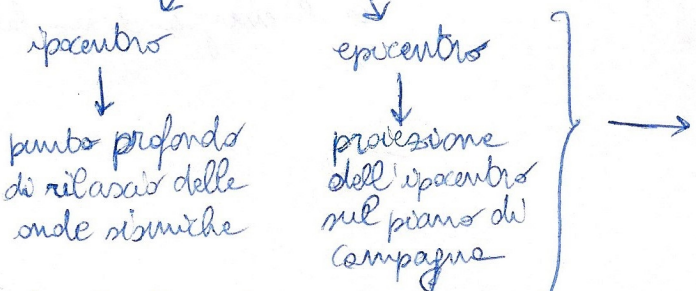 ipocentro
epicentro
punto profondo
di rilascio delle
onde sismiche
proiezione
dell'ipocentro
sul piano di
campagna